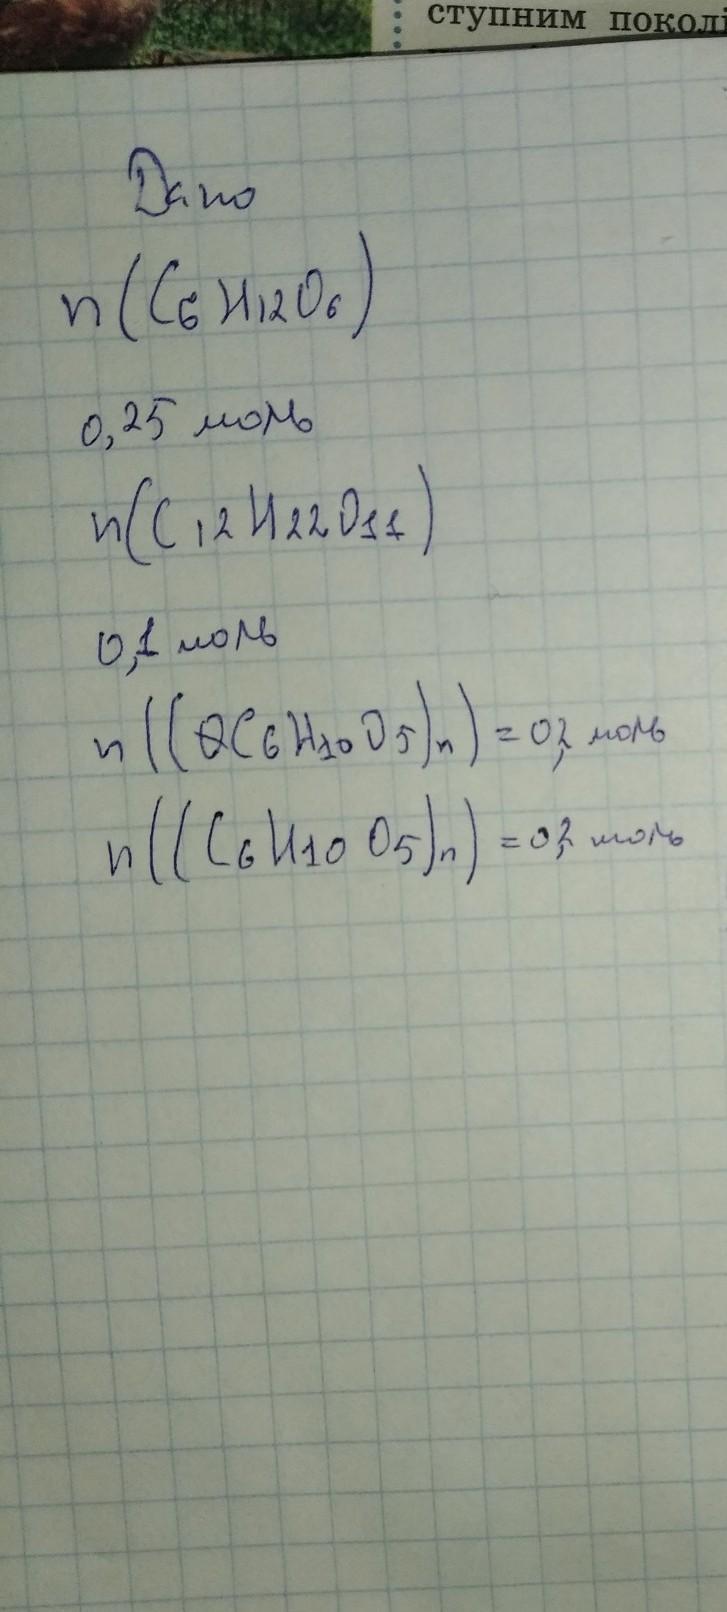 ступним поколі
Дано
n(C6H12O6)
0,25 моль
n(C12H22O11)
0,1 моль
n((C6H10O5)n) = моль
n((C6H10O5)n) = моль